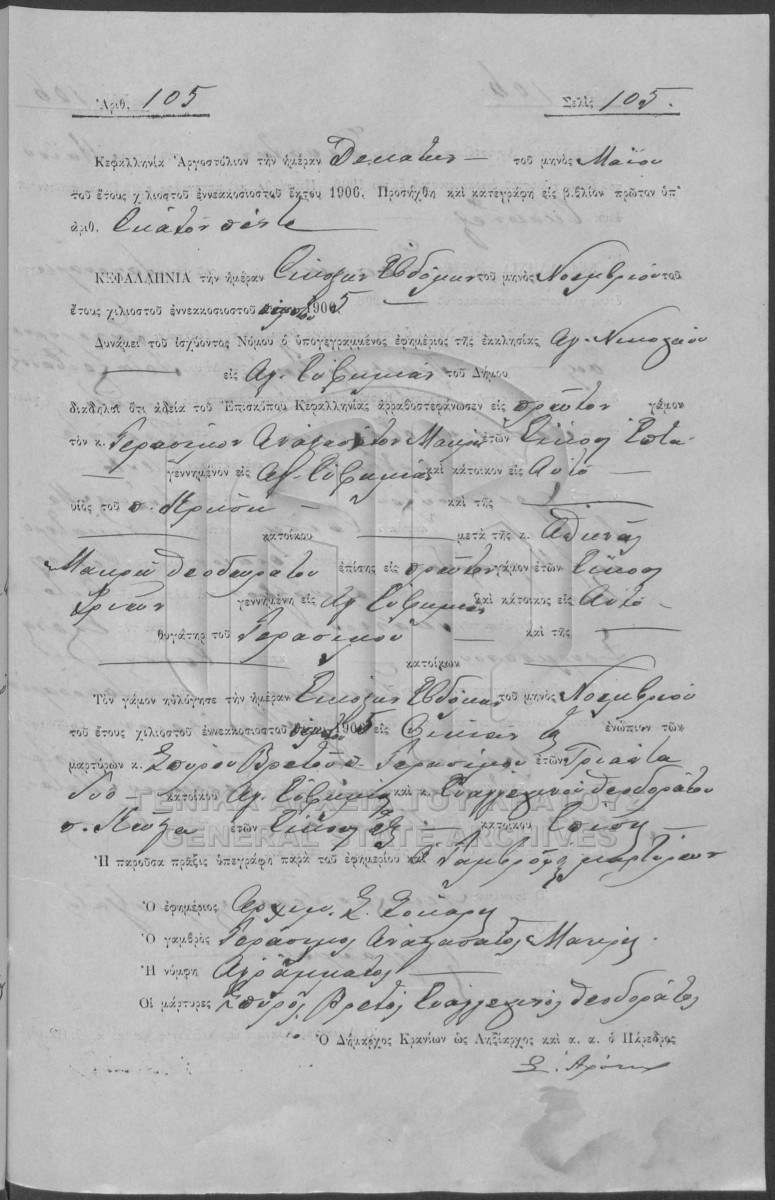 Ἀριθ. 105 Σελὶς 105.
Κεφαλληνία Ἀργοστόλιον τὴν ἡμέραν Δεκάτην τοῦ μηνὸς Μαΐου
τοῦ ἔτους χιλιοστοῦ ἐννεακοσιοστοῦ ἕκτου 1906. Προσήχθη καὶ κατεγράφη εἰς βιβλίον πρῶτον ὑπ'
ἀριθ. Ἑκατὸν πέντε
ΚΕΦΑΛΛΗΝΙΑ τὴν ἡμέραν Εἰκοστὴν Ἑβδόμην τοῦ μηνὸς Νοεμβρίου τοῦ
ἔτους χιλιοστοῦ ἐννεακοσιοστοῦ πέμπτου 1905
Δυνάμει τοῦ ἰσχύοντος Νόμου ὁ ὑπογεγραμμένος ἐφημέριος τῆς ἐκκλησίας Αγ. Νικολάου
εἰς Αγ. Εὐφημίαν τοῦ Δήμου
διαδηλοῖ ὅτι ἀδείᾳ τοῦ Ἐπισκόπου Κεφαλληνίας ἀρραβοστεφάνωσεν εἰς πρῶτον γάμον
τὸν κ. Γεράσιμον Μακρῆ ἐτῶν Εἴκοσι Ἑπτὰ
γεννημένον εἰς Αγ. Εὐφημίαν καὶ κάτοικον εἰς Αὐτὸ
υἱὸς τοῦ π. καὶ τῆς
κατοίκου μετὰ τῆς κ. Ἀθηνᾶς
Μακρῆ Θεοδωράτου ἐπίσης εἰς πρῶτον γάμον ἐτῶν Εἴκοσι
Τριῶν γεννημένη εἰς Αγ. Εὐφημίαν καὶ κάτοικος εἰς Αὐτὸ
θυγάτηρ τοῦ Γερασίμου καὶ τῆς
κατοίκων
Τὸν γάμον ηὐλόγησε τὴν ἡμέραν Εἰκοστὴν Ἑβδόμην τοῦ μηνὸς Νοεμβρίου
τοῦ ἔτους χιλιοστοῦ ἐννεακοσιοστοῦ πέμπτου 1905 εἰς Οἰκίαν ἐνώπιον τῶν
μαρτύρων κ. Σπύρου Βρεττοῦ Γερασίμου ἐτῶν Τριάντα
κατοίκου Αγ. Εὐφημία καὶ κ. Εὐαγγελινοῦ Θεοδωράτου
π. ἐτῶν Εἴκοσι ἓξ κατοίκου Ἐπίσης
Ἡ παροῦσα πρᾶξις ὑπεγράφη παρὰ τοῦ ἐφημερίου καὶ Γαμβροῦ μαρτύρων
Ὁ ἐφημέριος Αρχιμ. Σ.
Ὁ γαμβρὸς Γεράσιμος Μακρῆς
Ἡ νύμφη Ἀγράμματος
Οἱ μάρτυρες Σπῦρος Βρετός Εὐαγγελινὸς Θεοδωράτος
Ὁ Δήμαρχος Κρανίων ὡς Ληξίαρχος καὶ α. α. ὁ Πάρεδρος
ΓΕΝΙΚΑ ΑΡΧΕΙΑ ΤΟΥ ΚΡΑΤΟΥΣ
GENERAL STATE ARCHIVES